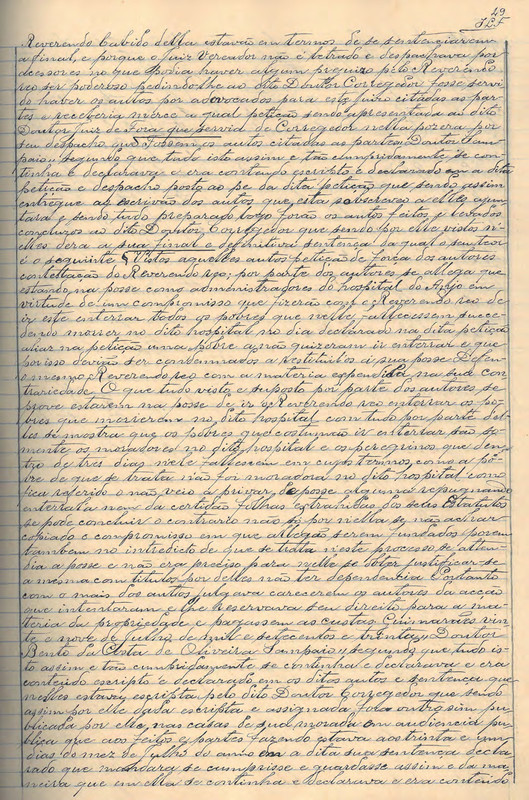 49
Reverendo Cabido della estavão em termos de se sentenciarem
afinal, e porque o Juiz Vereador não é letrado e despachava por
acessores no que podia haver algum prejuizo pelo Reverendo
reo ser poderoso pedindo-lhe ao dito Doutor Corregedor fosse servi
do haver os autos por advocados para este juizo citadas as par
tes e receberia mercê a qual petição sendo apresentada ao dito
Doutor Juiz de Fora que servia de Corregedor nella pozera por
seu despacho que fossem os autos citadas as partes Doutor Sam
paio, segundo que tudo isto assim e tão cumpridamente se con
tinha e declarava e era contendo escripto e declarado em a dita
petição e despacho posto ao pé da dita petição que sendo assim
entregue ao escrivão dos autos que esta subscreveu a elles ajun
tara e sendo tudo preparado logo forão os autos feitos e levados
concluzos ao dito Doutor Corregedor que sendo por elle vistos n'
elles dera a sua final e definitiva sentença da qual o seu theor
é o seguinte § Vistos aquelles autos petição de força dos autores
contestação do Reverendo reo; por parte dos autores se allega que
estando na posse como administradores do hospital do Anjo em
virtude de um compromisso que fizerão com o Reverendo reo de
ir este enterrar todos os pobres que nelle fallecessem succe
dendo morrer no dito hospital no dia declarado na dita petição
aliaz na petição uma pobre a não quizeram ir enterrar e que
por isso devião ser condemnados a restituil-os á sua posse Defen
o mesmo Reverendo reo com a materia expendida na sua con
trariedade. O que tudo visto e supposto por parte dos autores se
prove estarem na posse de ir o Reverendo reo enterrar os po
bres que morrerem no dito hospital com tudo por parte del
les se mostra que os pobres que costumão ir enterrar são so
mente os moradores no dito hospital e os peregrinos que den
tro de tres dias nelle fallescem em cujos termos como a po
bre de que se trata não foi moradora no dito hospital com
fica referido o não veio a privar de posse alguma repugnando
enterral-a nem da certidão folhas extrahidas dos seus Estatutos
se pode concluir o contrario não só por nella se não achar
copiado o compromisso em que allegão serem fundados porem
tambem no interdicto de que se trata n'este processo se atten
dia a posse e não era preciso para nella se obter justificar-se
a mesma com titulos por delles não ter dependencia Portanto
com o mais dos autos julgava carecerem os autores da acção
que intentaram e lhe reservava seu direito para a ma
teria da propriedade e pagassem as custas Guimarães vin
te e nove de Julho de mil e setecentos e trinta, Doutor
Bento da Costa de Oliveira Sampaio, segundo que tudo is
to assim e tão cumpridamente se continha e declarava e era
conteudo escripto e declarado em os ditos autos e sentença que
nelles estava escripta pelo dito Doutor Corregedor que sendo
assim por elle dada escripta e assignada fora outro sim pu
blicada por elle nas casas de sua morada em audiencia pu
blica que aos feitos e partes fazendo estava aos trinta e um
dias do mez de Julho do anno em a dita sua sentença decla
rado que mandara se cumprisse e guardasse assim e da ma
neira que em ella se continha e declarava e era conteudo